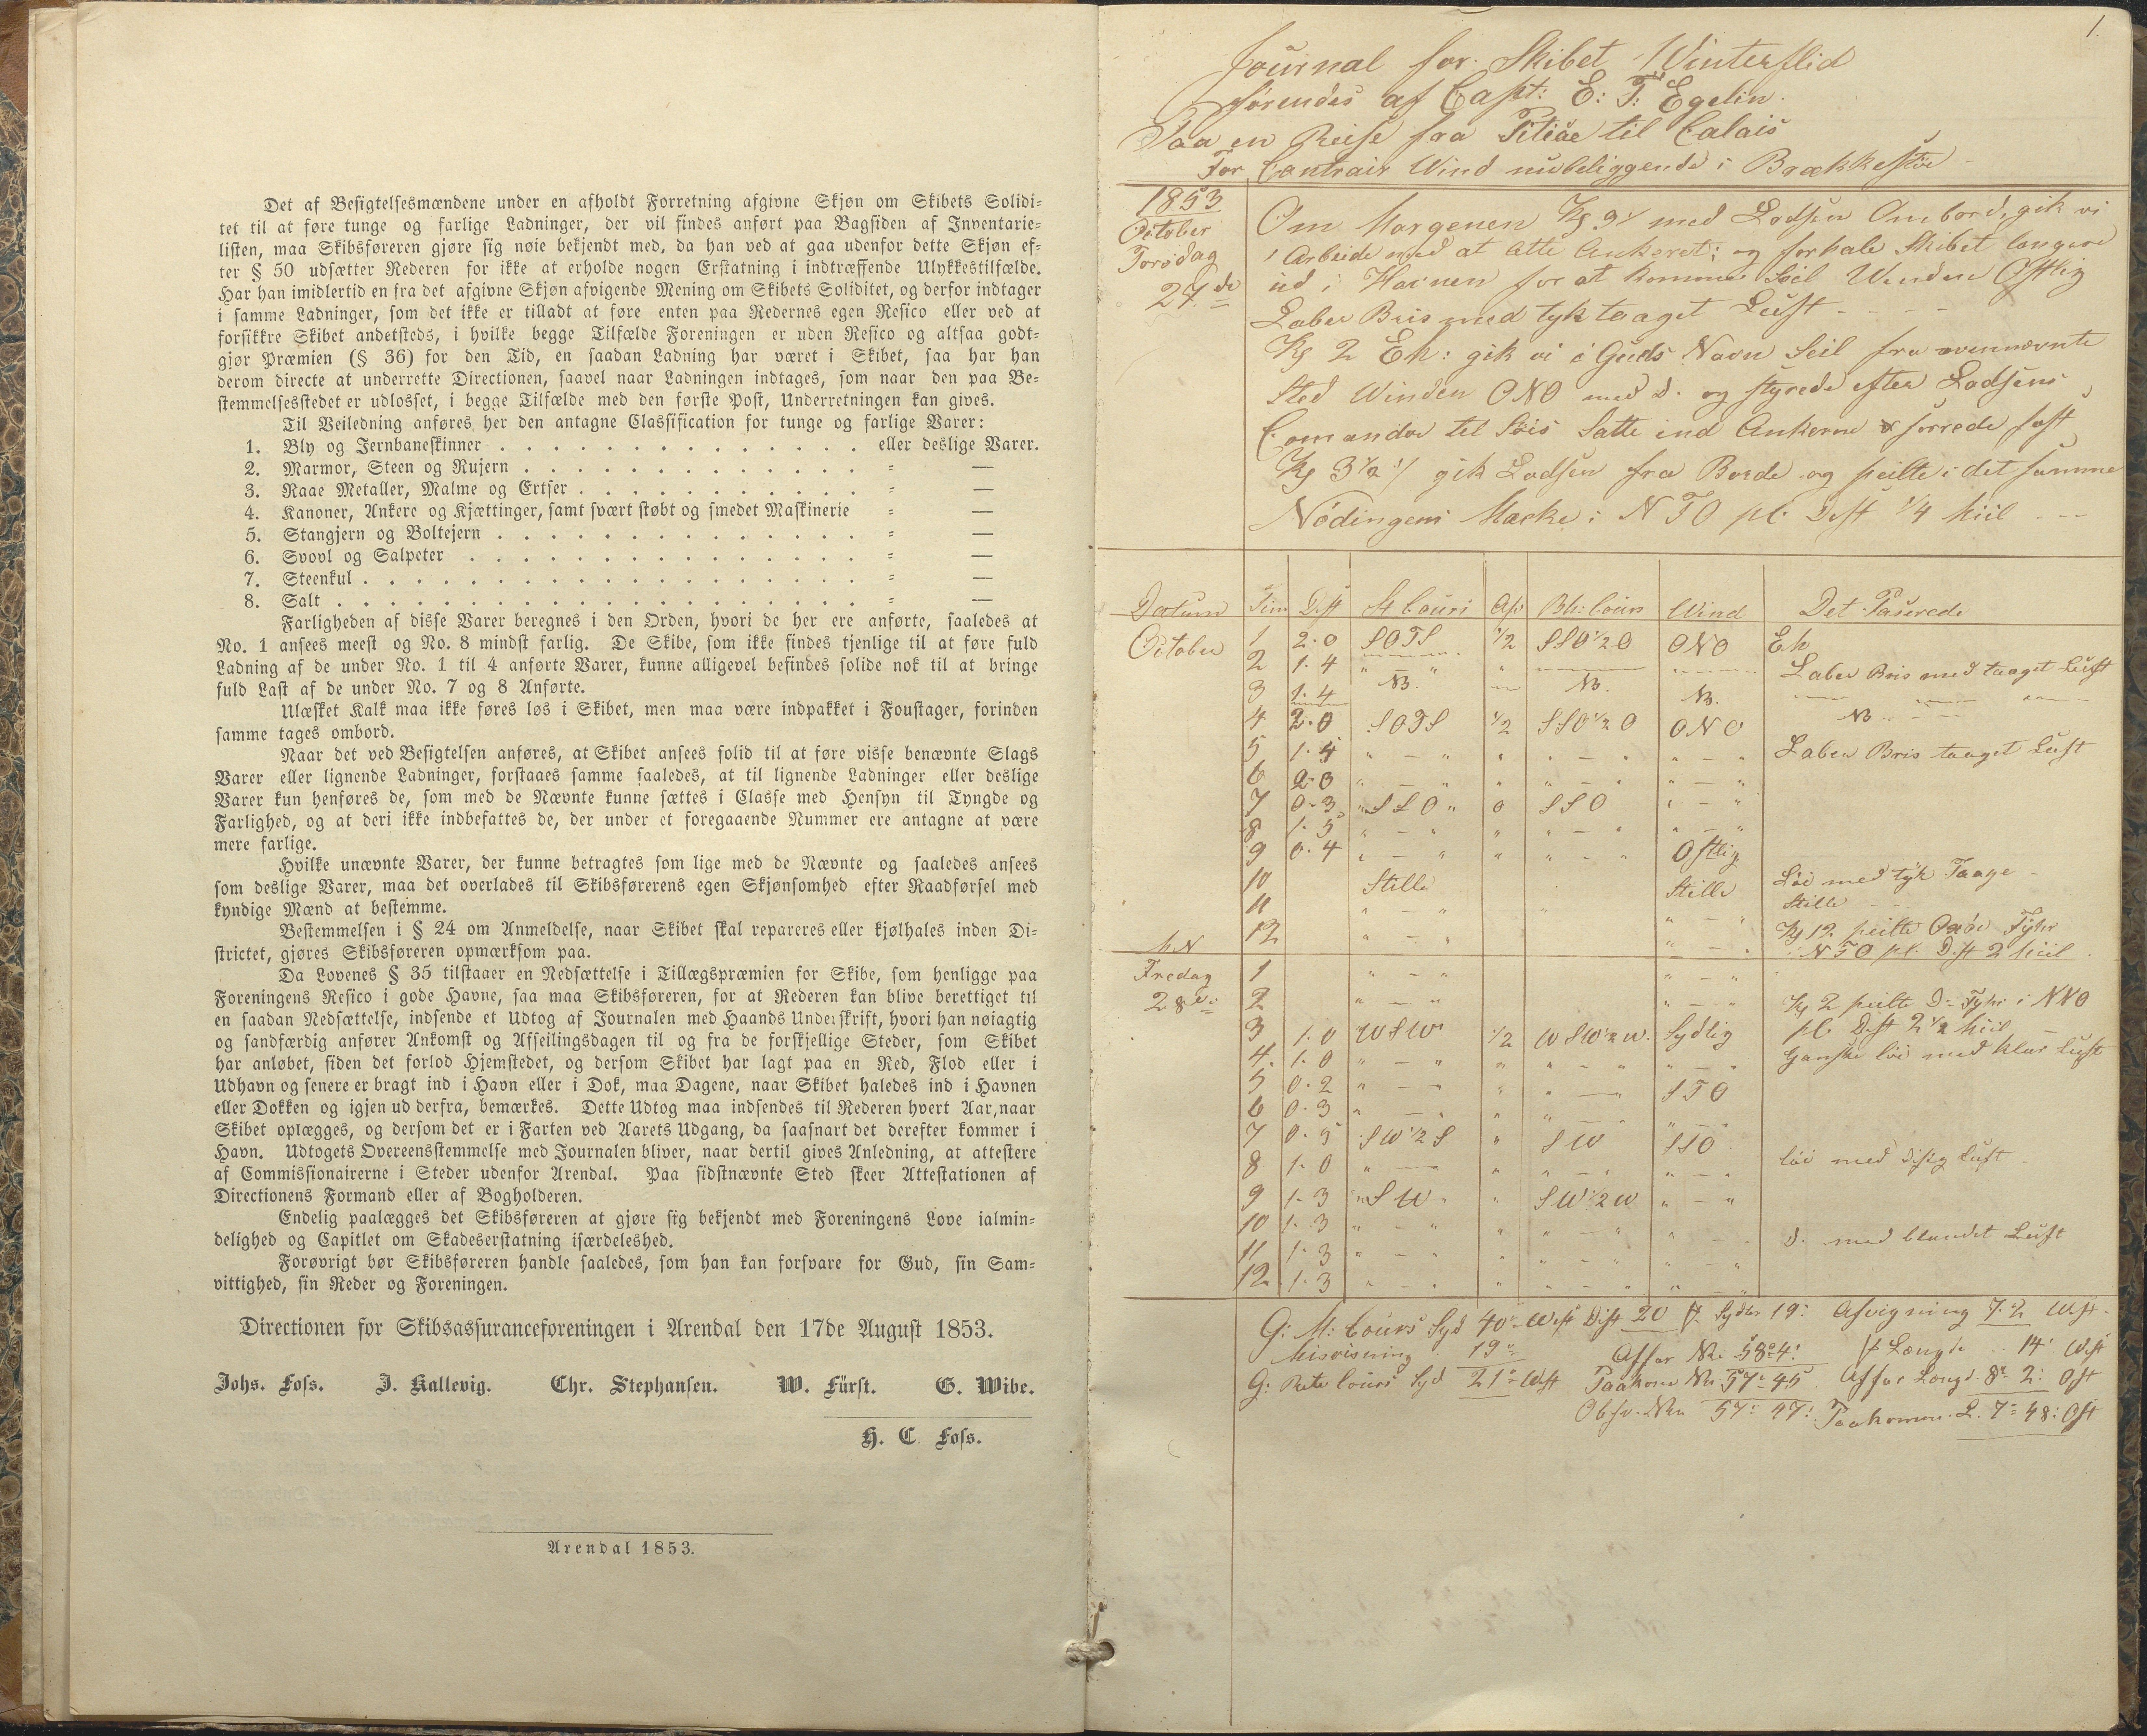 Det af Besigtelsesmændene under en afholdt Forretning afgivne Skjøn om Skibets Solidi-
tet til at føre tunge og farlige Ladninger, der vil findes anført paa Bagsiden af Inventarie-
listen, maa Skibsføreren gjøre sig nøie bekjendt med, da han ved at gaa udenfor dette Skjøn ef-
ter § 50 udsætter Rederen for ikke at erholde nogen Erstatning i indtræffende Ulykkestilfælde.
Har han imidlertid en fra det afgivne Skjøn afvigende Mening om Skibets Soliditet, og derfor indtager
i samme Ladninger, som det ikke er tilladt at føre enten paa Redernes egen Resico eller ved at
forsikkre Skibet andetsteds, i hvilke begge Tilfælde Foreningen er uden Resico og altsaa godt-
gjør Præmien (§ 36) for den Tid, en saadan Ladning har været i Skibet, saa har han
derom directe at underrette Directionen, saavel naar Ladningen indtages, som naar den paa Be-
stemmelsesstedet er udlosset, i begge Tilfælde med den første Post, Underretningen kan gives.
Til Veiledning anføres her den antagne Classification for tunge og farlige Varer:
1. Bly og Jernbaneskinner . . . . . . . . . . . . . . eller deslige Varer.
2. Marmor, Steen og Rujern . . . . . . . . . . . . . = —
3. Raae Metaller, Malme og Ertser . . . . . . . . . . . = —
4. Kanoner, Ankere og Kjættinger, samt svært støbt og smedet Maskinerie = —
5. Stangjern og Boltejern . . . . . . . . . . . . . . = —
6. Svovl og Salpeter . . . . . . . . . . . . . . . = —
7. Steenkul . . . . . . . . . . . . . . . . . . . = —
8. Salt . . . . . . . . . . . . . . . . . . . . = —
Farligheden af disse Varer beregnes i den Orden, hvori de her ere anførte, saaledes at
No. 1 ansees meest og No. 8 mindst farlig. De Skibe, som ikke findes tjenlige til at føre fuld
Ladning af de under No. 1 til 4 anførte Varer, kunne alligevel befindes solide nok til at bringe
fuld Last af de under No. 7 og 8 Anførte.
Ulæsket Kalk maa ikke føres løs i Skibet, men maa være indpakket i Foustager, forinden
samme tages ombord.
Naar det ved Besigtelsen anføres, at Skibet ansees solid til at føre visse benævnte Slags
Varer eller lignende Ladninger, forstaaes samme saaledes, at til lignende Ladninger eller deslige
Varer kun henføres de, som med de Nævnte kunne sættes i Classe med Hensyn til Tyngde og
Farlighed, og at deri ikke indbefattes de, der under et foregaaende Nummer ere antagne at være
mere farlige.
Hvilke unævnte Varer, der kunne betragtes som lige med de Nævnte og saaledes ansees
som deslige Varer, maa det overlades til Skibsførerens egen Skjønsomhed efter Raadførsel med
kyndige Mænd at bestemme.
Bestemmelsen i § 24 om Anmeldelse, naar Skibet skal repareres eller kjølhales inden Di-
strictet, gjøres Skibsføreren opmærksom paa.
Da Lovenes § 35 tilstaaer en Nedsættelse i Tillægspræmien for Skibe, som henligge paa
Foreningens Resico i gode Havne, saa maa Skibsføreren, for at Rederen kan blive berettiget til
en saadan Nedsættelse, indsende et Udtog af Journalen med Haands Underskrift, hvori han nøiagtig
og sandfærdig anfører Ankomst og Afseilingsdagen til og fra de forskjellige Steder, som Skibet
har anløbet, siden det forlod Hjemstedet, og dersom Skibet har lagt paa en Red, Flod eller i
Udhavn og senere er bragt ind i Havn eller i Dok, maa Dagene, naar Skibet haledes ind i Havnen
eller Dokken og igjen ud derfra, bemærkes. Dette Udtog maa indsendes til Rederen hvert Aar, naar
Skibet oplægges, og dersom det er i Farten ved Aarets Udgang, da saasnart det derefter kommer i
Havn. Udtogets Overeensstemmelse med Journalen bliver, naar dertil gives Anledning, at attestere
af Commissionairerne i Steder udenfor Arendal. Paa sidstnævnte Sted skeer Attestationen af
Directionens Formand eller af Bogholderen.
Endelig paalægges det Skibsføreren at gjøre sig bekjendt med Foreningens Love ialmin-
delighed og Capitlet om Skadeserstatning isærdeleshed.
Forøvrigt bør Skibsføreren handle saaledes, som han kan forsvare for Gud, sin Sam-
vittighed, sin Reder og Foreningen.
Directionen for Skibsassuranceforeningen i Arendal den 17de August 1853.
Johs. Foss. J. Kallevig. Chr. Stephansen. W. Fürst. G. Wibe.
H. C. Foss.
Arendal 1853.
1.
Journal for Skibet Winterflid
førendes af Capt: E: T: Egelin.
Paa en Reise fra Pitiäe til Calais
For Contrair Wind nubeliggende i Brækkestöe
1853
October
Torsdag
27de
Om Morgenen Kl 9 med Lodsen Ombord, gik vi
i Arbeide med at lette Ankeret; og forhale Skibet længere
ud i Havnen for at komme Seil Winden Ostlig
Laber Bris med tyk taaget Luft
Kl 2 Eh: gik vi i Guds Navn Seil fra ovennævnte
Sted Winden ONO med d. og styrede efter Lodsens
Comandoe til Søis Satte ind Ankerne & sorrede fast
Kl 3 1/2 gik Lodsen fra Borde og peilte i det samme
Nödingens Mærke i NTO pl. Dist 1/4 Miil
Datum Tim Dist St Cours Afd Bh: Cours Wind Det Paserede
October 1 2.0 SOTS 1/2 SSO 1/2 O ONO Eh
2 1.4 " — " " Laber Bris med taaget Luft
3 1.4
4 2.0 SOTS 1/2 SSO 1/2 O ONO
5 1.4 " — " " " — " " — " Laber Bris taaget Luft
6 2.0 " — " " " — " " — "
7 0.3 " SSO " 0 SSO " — "
8 1.5 " — " " " — " " — "
9 0.4 " — " " " — " Ostlig
10 Stille Stille Löi med tyk Taage
11 " — " " " — " Stille
12 " — " " — " Kl 12 peilte Oxöe Fyhr
NTO pl. Dist 2 Miil
Fredag 1 " — " " — "
28de 2 " — " " — " Kl 2 peilte D: Fyhr i NNO
pl. Dist 2 1/2 Miil
3 1.0 WSW 1/2 WSW 1/2 W. Sydlig
4 1.0 " — " " " — " " — " Ganske löi med klar Luft
5 0.2 " — " " " — " STO
6 0.3 " — " " " — " " — "
7 0.5 SW 1/2 S " SW SSO
8 1.0 " — " " " — " " — " löi med disig Luft
9 1.3 " SW " " SW 1/2 W " — "
10 1.3 " — " " " — " " — "
11 1.3 " — " " " — " " — " d. med blandet Luft
12 1.3 " — " " " — " " — "
G: M: Cours Syd 40° West Dist 20 Syd 19: Afvigning 7.2 West
Misvisning 19° Affar Nr. 58° 4' Længde 14' West
G: Rete Cours Syd 21° West Paakome Nr 57° 45 Affar Længd. 8° 2: Ost
Obsr. Nr. 57° 47' Paakomen. L. 7° 48: Ost